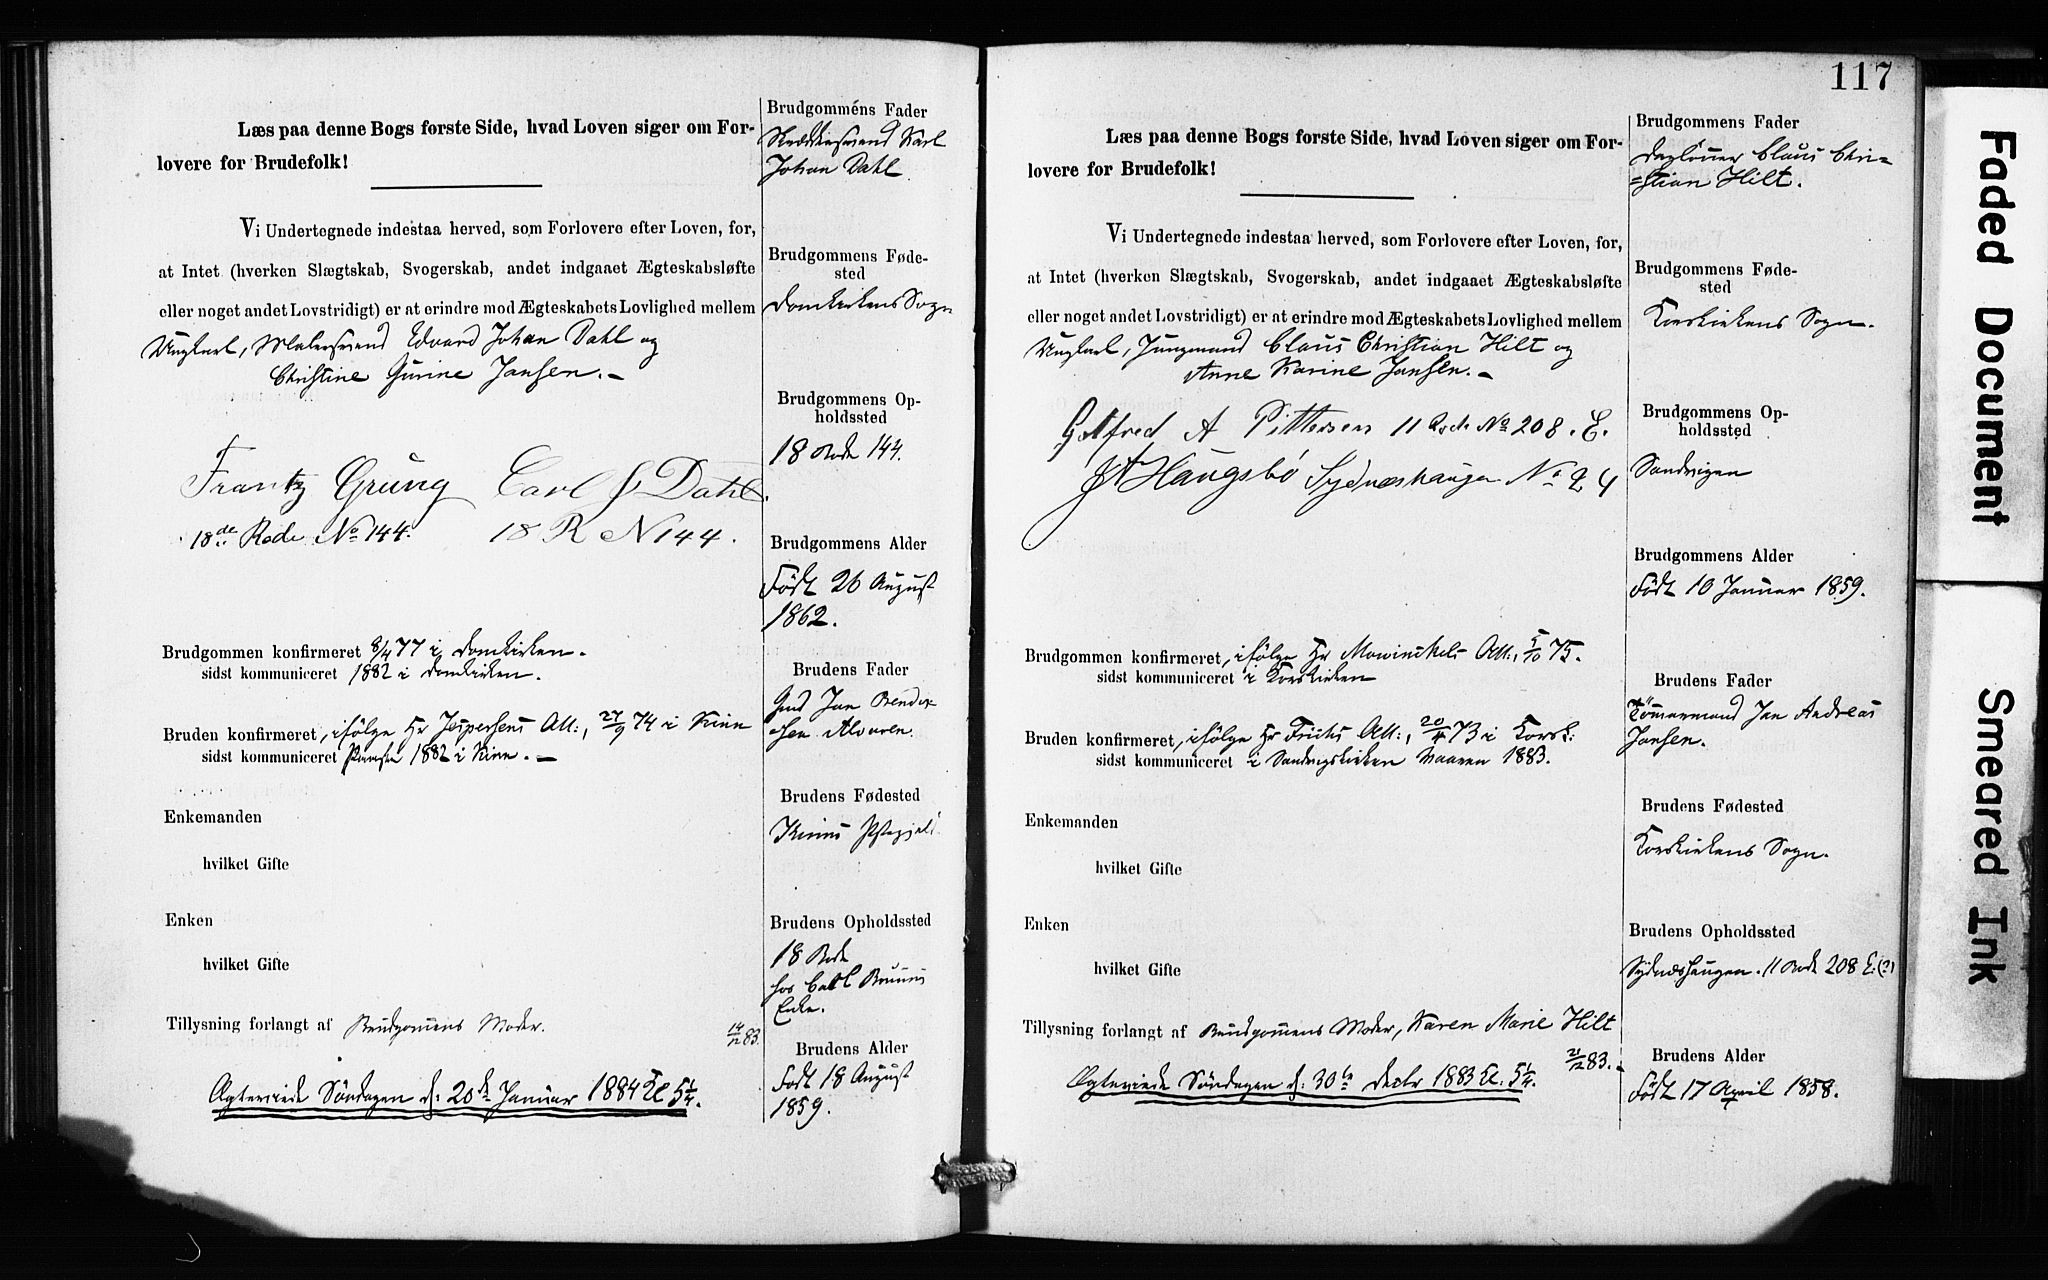 Læs paa denne Bogs forste Side, hvad Loven siger om For-
lovere for Brudefolk!
Vi Undertegnede indestaa herved, som Forlovere efter Loven, for,
at Intet (hverken Slægtskab, Svogerskab, andet indgaaet Ægteskabsløfte
eller noget andet Lovstridigt) er at erindre mod Ægteskabets Lovlighed mellem
Ungkarl, Malersvend Edvard Johan Dahl og
Christine Gurine Jansen.
Frantz Grung Carl J Dahl.
18de Rode No 144. 18 R N 144.
Brudgommen konfirmeret 8/4 77 i Domkirken.
sidst kommuniceret 1882 i Domkirken.
Bruden konfirmeret, ifølge Hr Jespersens Att:, 27/9 74 i Kinn
sidst kommuniceret 1882 i Kinn.
Enkemanden
hvilket Gifte
Enken
hvilket Gifte
Tillysning forlangt af Brudgommens Moder. 14/12 83.
Ægteviede Søndagen d: 20de Januar 1884 Kl 5 1/4.
Brudgommens Fader
Karl
Johan Dahl.
Brudgommens Føde-
sted
Domkirkens Sogn
Brudgommens Op-
holdssted
18 Rode 144.
Brudgommens Alder
Født 26 August
1862.
Brudens Fader
Jan
Brudens Fødested
Kinns
Brudens Opholdssted
18 Rode
hos
Enke.
Brudens Alder
Født 18 August
1859.
117
Læs paa denne Bogs forste Side, hvad Loven siger om For-
lovere for Brudefolk!
Vi Undertegnede indestaa herved, som Forlovere efter Loven, for,
at Intet (hverken Slægtskab, Svogerskab, andet indgaaet Ægteskabsløfte
eller noget andet Lovstridigt) er at erindre mod Ægteskabets Lovlighed mellem
Ungkarl, Jungmand Claus Christian Hilt og
Anne Karine Jansen.
Gotfred A Pittersen 11 Rode No 208. E.
J A Haugsbö Sydneshaugen No 24
Brudgommen konfirmeret, ifølge Hr Mowinckels Att:, 5/10 75.
sidst kommuniceret i Korskirken
Bruden konfirmeret, ifølge Hr Att:, 73 i Korsk:
sidst kommuniceret i Sandvigskirken Vaaren 1883.
Enkemanden
hvilket Gifte
Enken
hvilket Gifte
Tillysning forlangt af Brudgommens Moder, Karen Marie Hilt
21/12 83.
Ægteviede Søndagen d: 30te Decbr 1883 Kl: 5 1/4.
Brudgommens Fader
Dagløner Claus Chri=
=stian Hilt.
Brudgommens Føde-
sted
Korskirkens Sogn.
Brudgommens Op-
holdssted
Sandvigen
Brudgommens Alder
Født 10 Januar 1859.
Brudens Fader
Tømmermand Jan Andreas
Jansen.
Brudens Fødested
Korskirkens Sogn.
Brudens Opholdssted
Sydneshaugen. 11 Rode 208 E. (?)
Brudens Alder
Født 17 April 1858.
Faded Document
Smeared Ink